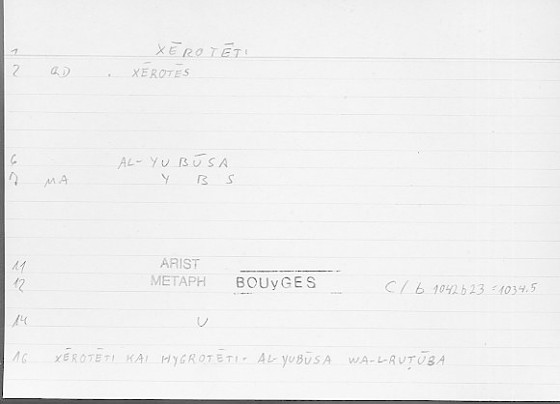 1 XĒROTĒTI
2 QD . XĒROTĒS
6 AL-YUBŪSA
7 MA Y B S
11 ARIST
12 METAPH BOUyGES C/b 1042b23=1034.5
14 U
16 XĒROTĒTI KAI HYGROTĒTI - AL-YUBŪSA WA-L-RUṬŪBA